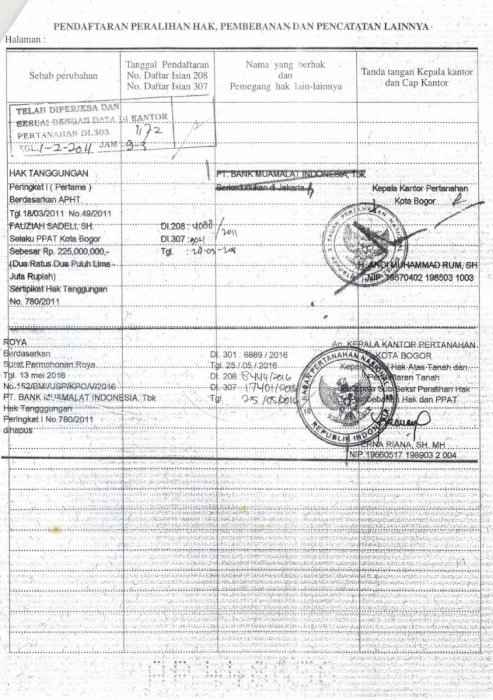 PENDAFTARAN PERALIHAN HAK, PEMBEBANAN DAN PENCATATAN LAINNYA
Halaman :
Sebab perubahan
Tanggal Pendaftaran
No. Daftar Isian 208
No. Daftar Isian 307
Nama yang berhak
dan
Pemegang hak lain-lainnya
Tanda tangan Kepala kantor
dan Cap Kantor
TELAH DIPERIKSA DAN
SESUAI DENGAN DATA DI KANTOR
PERTANAHAN DI.303 1/72
TGL 1-2-2011 JAM 9-3
HAK TANGGUNGAN
Peringkat I ( Pertama )
Berdasarkan APHT.
Tgl 18/03/2011 No.49/2011
FAUZIAH SADELI, SH.
Selaku PPAT Kota Bogor
Sebesar Rp. 225,000,000,-
(Dua Ratus Dua Puluh Lima -
Juta Rupiah)
Sertipikat Hak Tanggungan
No. 780/2011
DI.208 : /2011
DI.307 :
Tgl.
PT. BANK MUAMALAT INDONESIA, Tbk
Berkedudukan di Jakarta
Kepala Kantor Pertanahan
Kota Bogor
KANTOR PERTANAHAN
H. ANDI MUHAMMAD RUM, SH
NIP. 19570402 198503 1003
ROYA
Berdasarkan
Surat Permohonan Roya
Tgl. 13 mei 2016
No.152/BMI/USP/KPO/V/2016
PT. BANK MUAMALAT INDONESIA. Tbk
Hak Tangggungan
Peringkat I No.780/2011
dihapus
DI. 301 : 6889 / 2016
Tgl. 25 / 05 / 2016
DI. 208 : /2016
DI. 307 : 17401/2016
Tgl 25 /05/2016
An. KEPALA KANTOR PERTANAHAN
KOTA BOGOR
Hak Atas Tanah dan
Pendaftaran Tanah
Seksi Peralihan Hak
Pembebanan Hak dan PPAT
PERTANAHAN
REPUBLIK INDONESIA
ERNA RIANA, SH. MH
NIP.19660517 198903 2 004